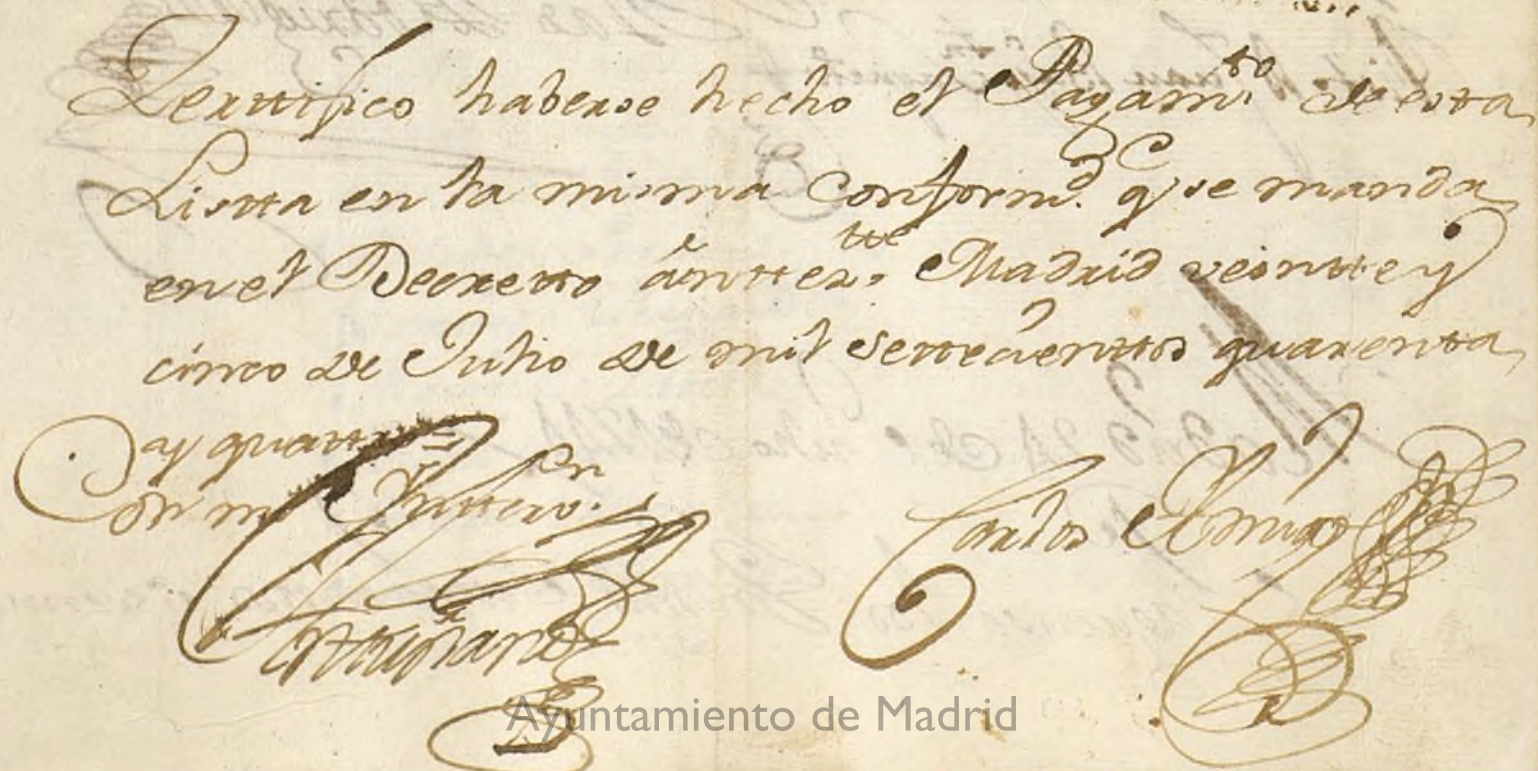 Zerttifico haberse hecho el Pagam.to de esta
Listta en la misma Conform.d q.e se manda
en el Decretto antter.tte Madrid veintte y
cinco de Julio de mil settecienttos quarenta
y quattro =
Con mi Ynttero.on
Carlos Amigo
Ayuntamiento de Madrid